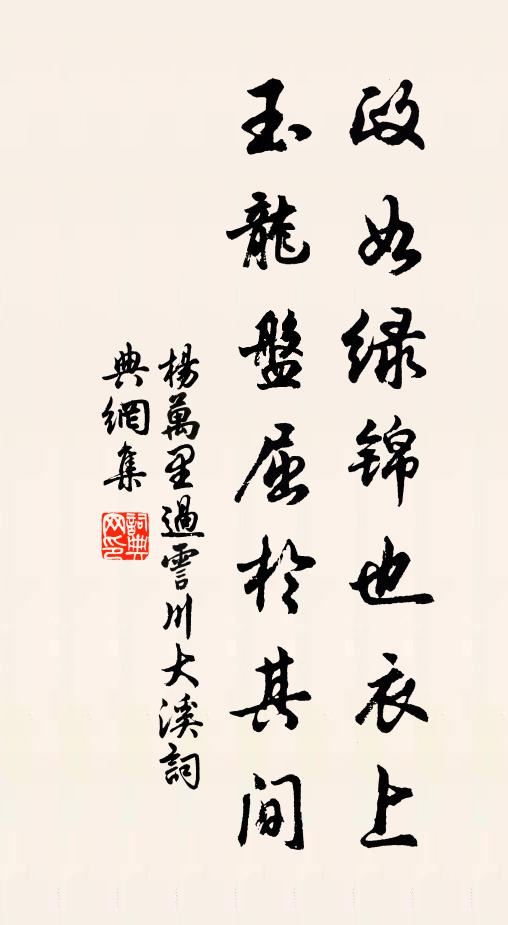 政如绿锦也衣上
玉龍盤屈於其间
楊萬里過霅川大溪詞
典網集
詞典
网印